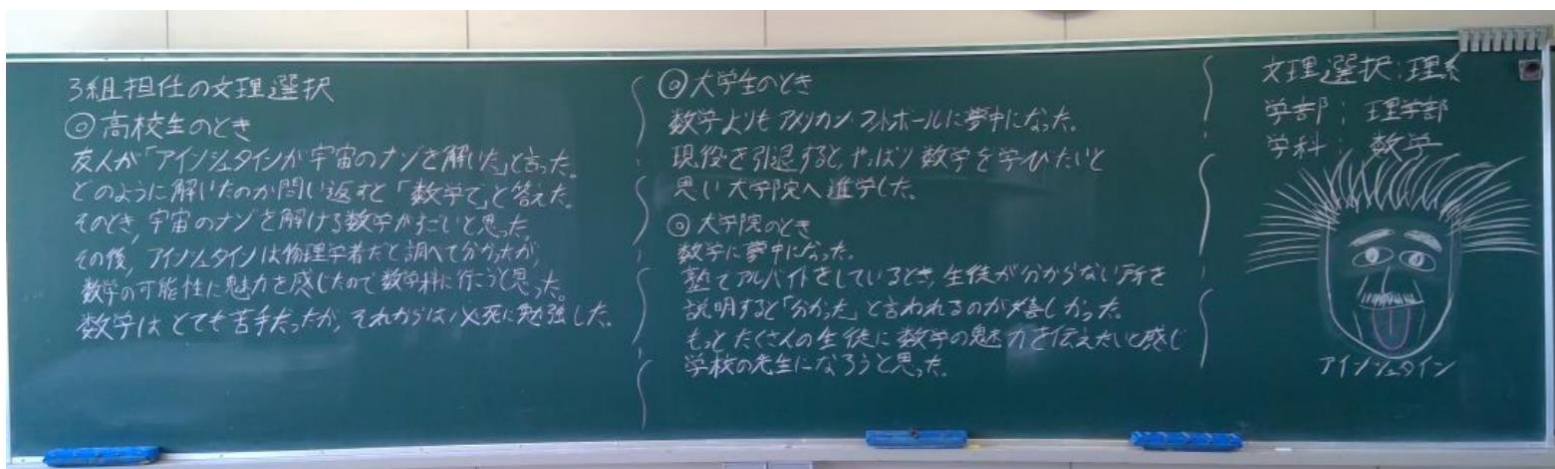 3組担任の文理選択
◎高校生のとき
友人が「アインシュタインが宇宙のナゾを解いた」と言った。
どのように解いたのか問い返すと「数学で」と答えた。
そのとき、宇宙のナゾを解ける数学がすごいと思った。
その後、アインシュタインは物理学者だと調べて分かったが、
数学の可能性に魅力を感じたので数学科に行こうと思った。
数学はとても苦手だったが、それからは必死に勉強した。
◎大学生のとき
数学よりもアメリカンフットボールに夢中になった。
現役を引退すると、やっぱり数学を学びたいと
思い大学院へ進学した。
◎大学院のとき
数学に夢中になった。
塾でアルバイトをしているとき、生徒が分からない所を
説明すると「分かった」と言われるのが嬉しかった。
もっとたくさんの生徒に数学の魅力を伝えたいと感じ
学校の先生になろうと思った。
文理選択:理系
学部:理学部
学科:数学
アインシュタイン